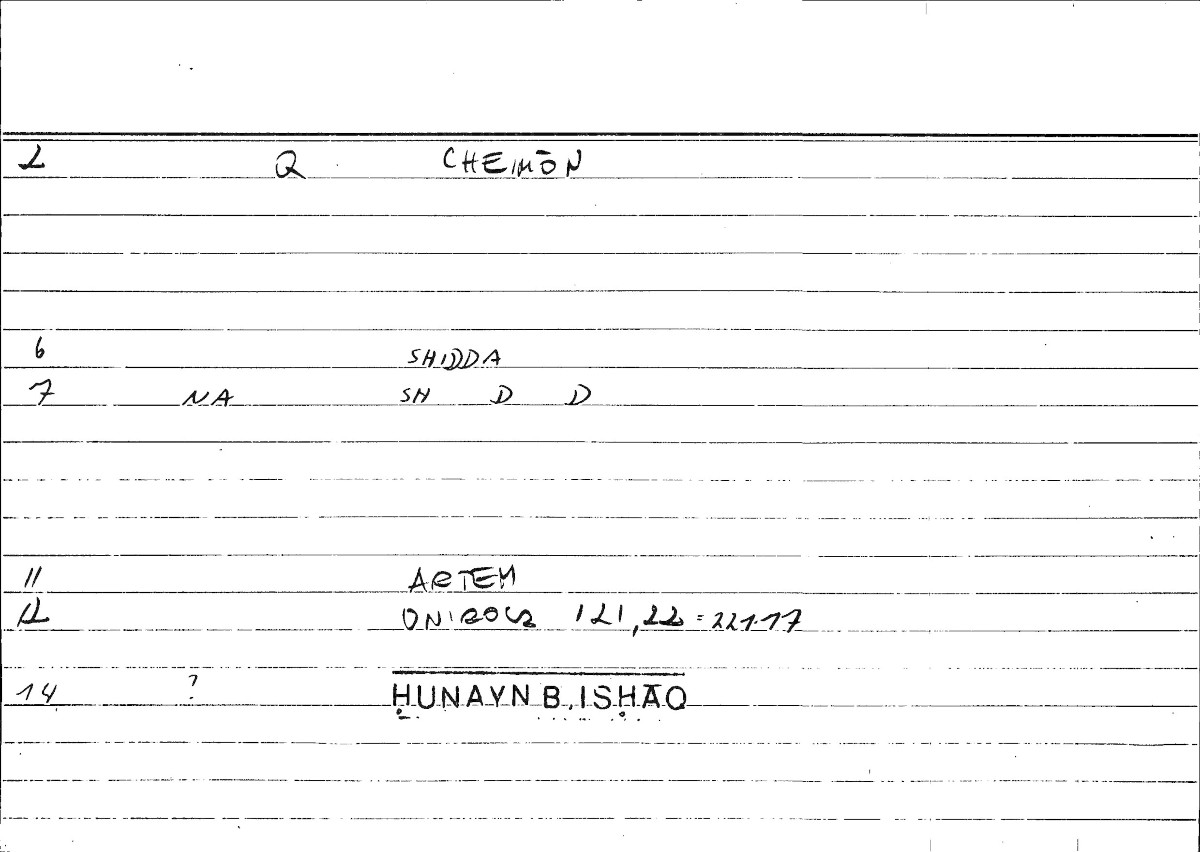 2 Q CHEIMŌN
6 SHIDDA
7 NA SH D D
11 ARTEM
12 ONIROCR 121,22 = 221.17
14 ? ḤUNAYN B. ISḤĀQ